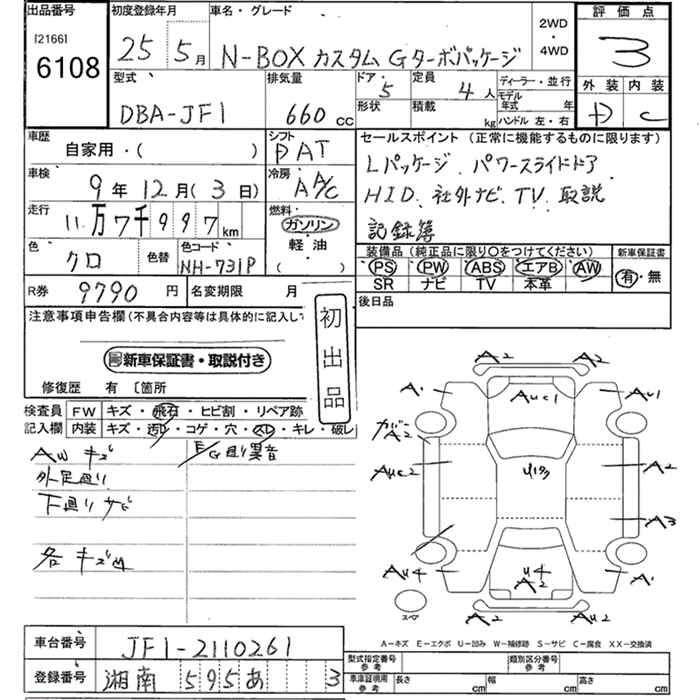 出品番号
[2166]
6108
初度登録年月
25 5月
車名・グレード
N-BOX カスタム Gターボパッケージ
2WD
・
4WD
評価点
3
型式
DBA-JF1
排気量
660 cc
ドア・
5
形状
定員
4 人
積載
kg
ディーラー・並行
モデル年式 年
ハンドル 左・右
外装 内装
D C
車歴
自家用・( )
シフト
PAT
セールスポイント (正常に機能するものに限ります)
Lパッケージ パワースライドドア
HID、社外ナビ、TV、取説
記録簿
車検
9年 12月 (3日)
冷房
AA/C
走行
11万7千997 km
燃料・
ガソリン
軽・油
( )
色
クロ
色替
色コード
NH-731P
装備品 (純正品に限り○をつけてください)
PS PW ABS エアB AW
SR ナビ TV 本革
新車保証書
有・無
R券 9790 円
名変期限 月
後日品
注意事項申告欄 (不具合内容等は具体的に記入して
初出品
新車保証書・取説付き
修復歴 有 [箇所
検査員 FW キズ・飛石・ヒビ割・リペア跡
記入欄 内装 キズ・汚レ・コゲ・穴・スレ・キレ・破レ
AW キズ
E/G廻り異音
外足廻り
下廻り サビ
各 キズ凹
A2 A2
A・ AUC1 AU1
カバー
A2
AUC2 A2
A3
AU4 U4 A2 A・
スペア
A2 AU2
A-キズ E-エクボ U-凹み W-補修跡 S-サビ C-腐食 XX-交換済
車台番号 JF1-2110261
登録番号 湘南 595 あ 3
型式指定番号
参考
類別区分番号
参考
車庫証明用
参考
長さ cm 幅 cm 高さ cm